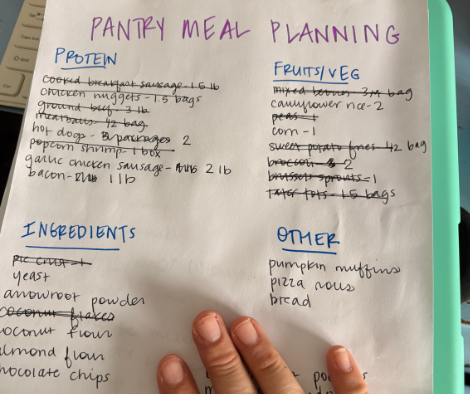 PANTRY MEAL PLANNING
PROTEIN
cooked breakfast sausage - 1.5 lb
chicken nuggets - 1.5 bags
ground beef - 3 lb
meatballs - 1/2 bag
hot dogs - packages 2
popcorn shrimp - 1 box
garlic chicken sausage - 2 lb
bacon - 1 lb
FRUITS/VEG
mixed berries - 3/4 bag
cauliflower rice - 2
peas - 1
corn - 1
sweet potato fries - 1/2 bag
broccoli - 2
brussels sprouts - 1
tater tots - 1.5 bags
INGREDIENTS
pie crust - 1
yeast
arrowroot powder
coconut flakes
coconut flour
almond flour
chocolate chips
OTHER
pumpkin muffins
pizza rolls
bread